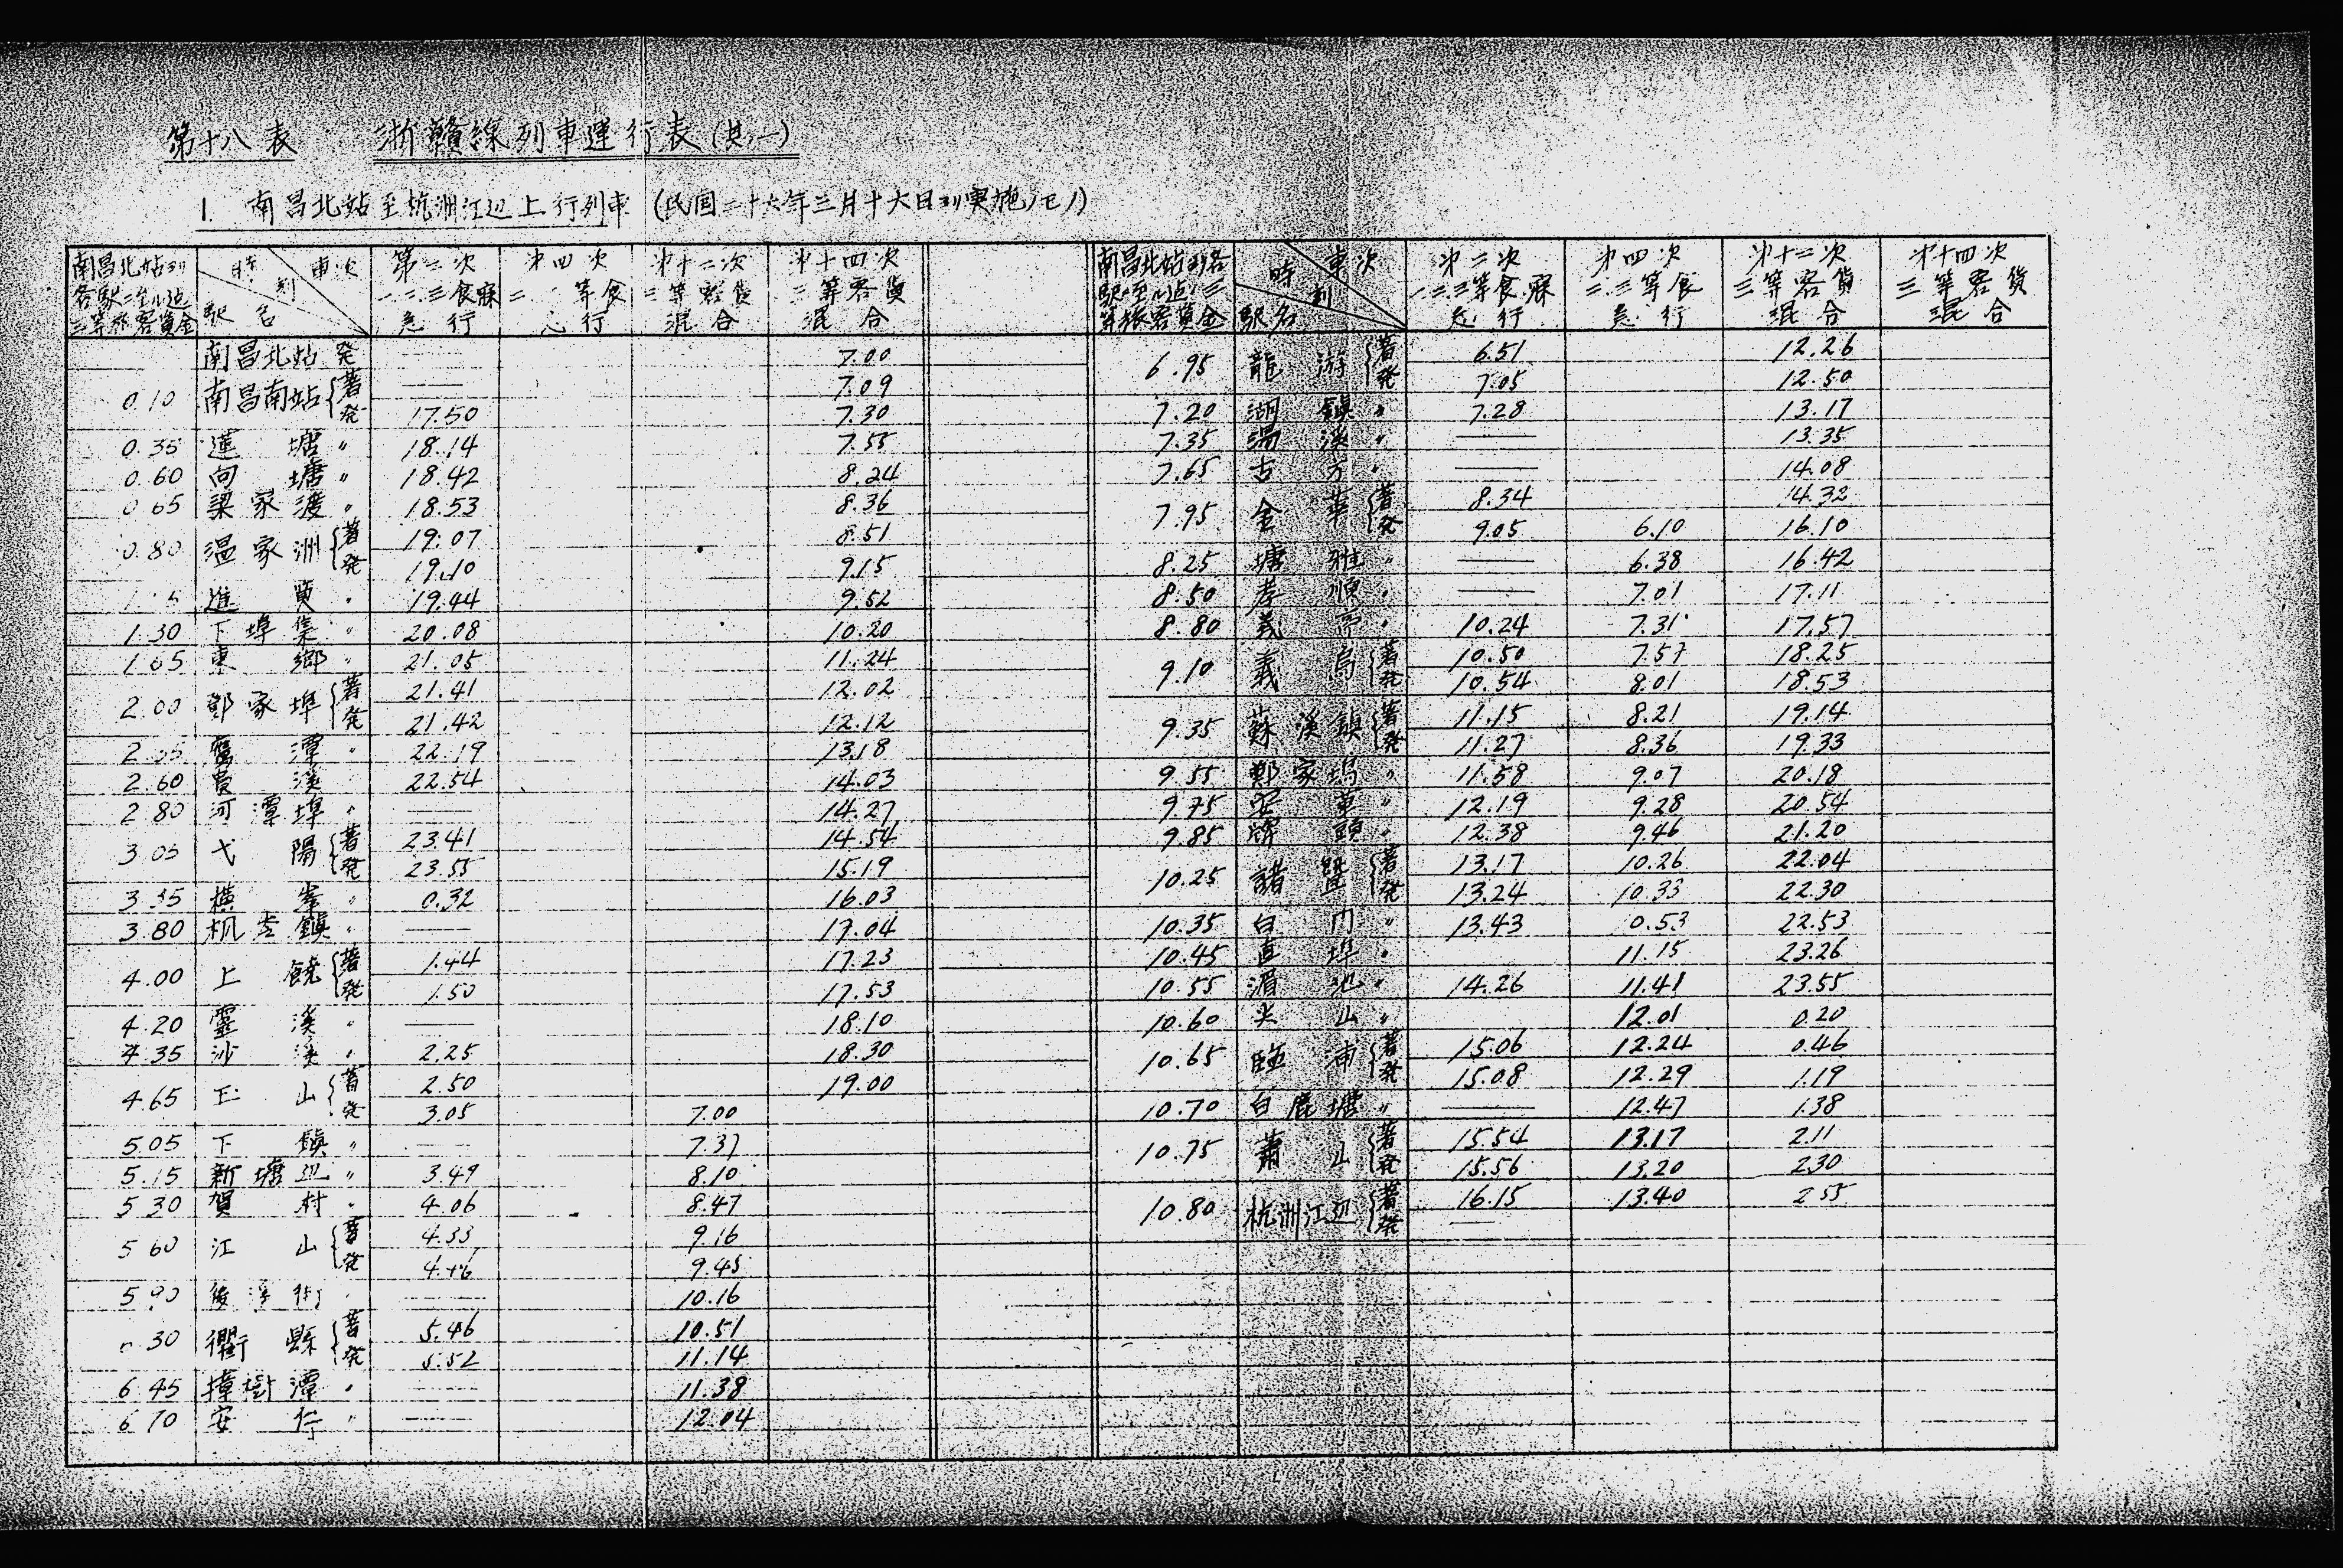 第十八表 浙贛線列車運行表(其ノ一)
1. 南昌北站至杭洲江辺上行列車 (民国二十六年三月十六日ヨリ実施ノモノ)
南昌北站ヨリ各駅ニ至ル迄三等旅客賃金 時刻 車次 駅名 第二次 一二.三食寐 急行 第四次 等食 急行 第十二次 三等客貨 混合 第十四次 三等客貨 混合
南昌北站 発 —— 7.00
0.10 南昌南站 着 —— 7.09
発 17.50 7.30
0.35 蓮塘 〃 18.14 7.55
0.60 向塘 〃 18.42 8.24
0.65 梁家渡 〃 18.53 8.36
0.80 温家洲 着 19.07 8.51
発 19.10 9.15
進賢 〃 19.44 9.52
1.30 下埠集 〃 20.08 10.20
1.65 東郷 〃 21.05 11.24
2.00 鄧家埠 着 21.41 12.02
発 21.42 12.12
鷹潭 〃 22.19 13.18
2.60 貴溪 22.54 14.03
2.80 河潭埠 〃 —— 14.27
3.05 弋陽 着 23.41 14.54
発 23.55 15.19
3.35 横峯 〃 0.32 16.03
3.80 楓老鎮 〃 —— 17.04
4.00 上饒 着 1.44 17.23
発 1.50 17.53
4.20 靈溪 〃 —— 18.10
4.35 沙溪 〃 2.25 18.30
4.65 玉山 着 2.50 19.00
発 3.05 7.00
5.05 下鎮 〃 —— 7.37
5.15 新塘辺 〃 3.49 8.10
5.30 賀村 〃 4.06 8.47
5.60 江山 着 4.33 9.16
発 4.46 9.45
5.90 後溪街 〃 —— 10.16
30 衢縣 着 5.46 10.51
発 5.52 11.14
6.45 樟樹潭 〃 —— 11.38
6.70 安仁 〃 —— 12.04
南昌北站ヨリ各駅ニ至ル迄ノ三等旅客賃金 時刻 車次 駅名 第二次 一.二.三等食.寐 急行 第四次 二.三等食 急行 第十二次 三等客貨 混合 第十四次 三等客貨 混合
6.95 龍游 着 6.51 12.26
発 7.05 12.50
7.20 湖鎮 〃 7.28 13.17
7.35 湯溪 〃 —— 13.35
7.65 古方 〃 —— 14.08
7.95 金華 着 8.34 14.32
発 9.05 6.10 16.10
8.25 塘雅 〃 —— 6.38 16.42
8.50 孝順 〃 —— 7.01 17.11
8.80 義亭 〃 10.24 7.31 17.57
9.10 義烏 着 10.50 7.57 18.25
発 10.54 8.01 18.53
9.35 蘇溪鎮 着 11.15 8.21 19.14
発 11.27 8.36 19.33
9.55 鄭家塢 〃 11.58 9.07 20.18
9.75 安華 〃 12.19 9.28 20.54
9.85 牌頭 〃 12.38 9.46 21.20
10.25 諸暨 着 13.17 10.26 22.04
発 13.24 10.33 22.30
10.35 白門 〃 13.43 0.53 22.53
10.45 直埠 〃 11.15 23.26
10.55 湄池 〃 14.26 11.41 23.55
10.60 尖山 〃 12.01 0.20
10.65 臨浦 着 15.06 12.24 0.46
発 15.08 12.29 1.19
10.70 白鹿塘 〃 —— 12.47 1.38
10.75 蕭山 着 15.54 13.17 2.11
発 15.56 13.20 2.30
10.80 杭洲江辺 着 16.15 13.40 2.55
発 ——